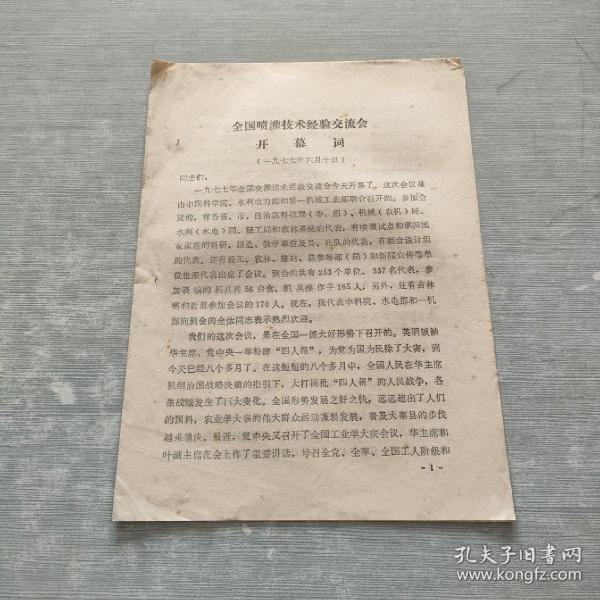 全国喷灌技术经验交流会
开幕词
（一九七七年六月十日）
同志们：
一九七七年全国喷灌技术经验交流会今天开幕了。这次会议是
由中国科学院、水利电力部和第一机械工业部联合召开的。参加会
议的，有各省、市、自治区科技局（委、组）、机械（农机）局、
水利（水电）局、轻工局和农林系统的代表，有喷灌试点和承担国
家课题的科研、制造、教学单位及县、社队的代表，有联合设计组
的代表。还有轻工、农林、建材、总参等部（局）和新闻宣传等单
位也派代表出席了会议。到会的共有253个单位、337名代表，参
加表演的机具共56台套、机具操作手165人，另外，还有吉林
省和
参加会议的170人。现在，我代表中科院、水电部和一机
部向到会的全体同志表示热烈欢迎。
我们的这次会议，是在全国一派大好形势下召开的。英明领袖
华主席、党中央一举粉碎“四人帮”，为党为国为民除了大害，到
今天已经八个多月了。在这短短的八个多月中，全国人民在华主席
抓纲治国战略决策的指引下，大打揭批“四人帮”的人民战争，各
条战线发生了巨大变化。全国形势发展之好之快，远远超出了人们
的预料，农业学大寨的伟大群众运动蓬勃发展，普及大寨县的步伐
越来越快。最近，党中央又召开了全国工业学大庆会议，华主席和
叶副主席在会上作了重要讲话，号召全党、全军、全国工人阶级和
-1-
孔夫子旧书网
www.kongfz.com